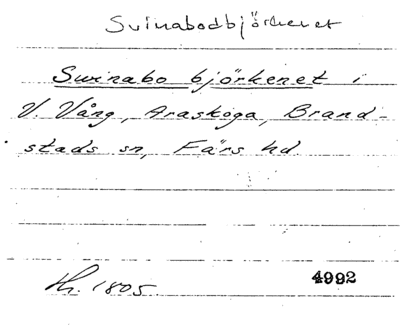 Svinabodbjörkenet
Swinabo björkenet i
V. Vång, Araskoga, Brand-
stads sn, Färs hd.
Th. 1805. 4992